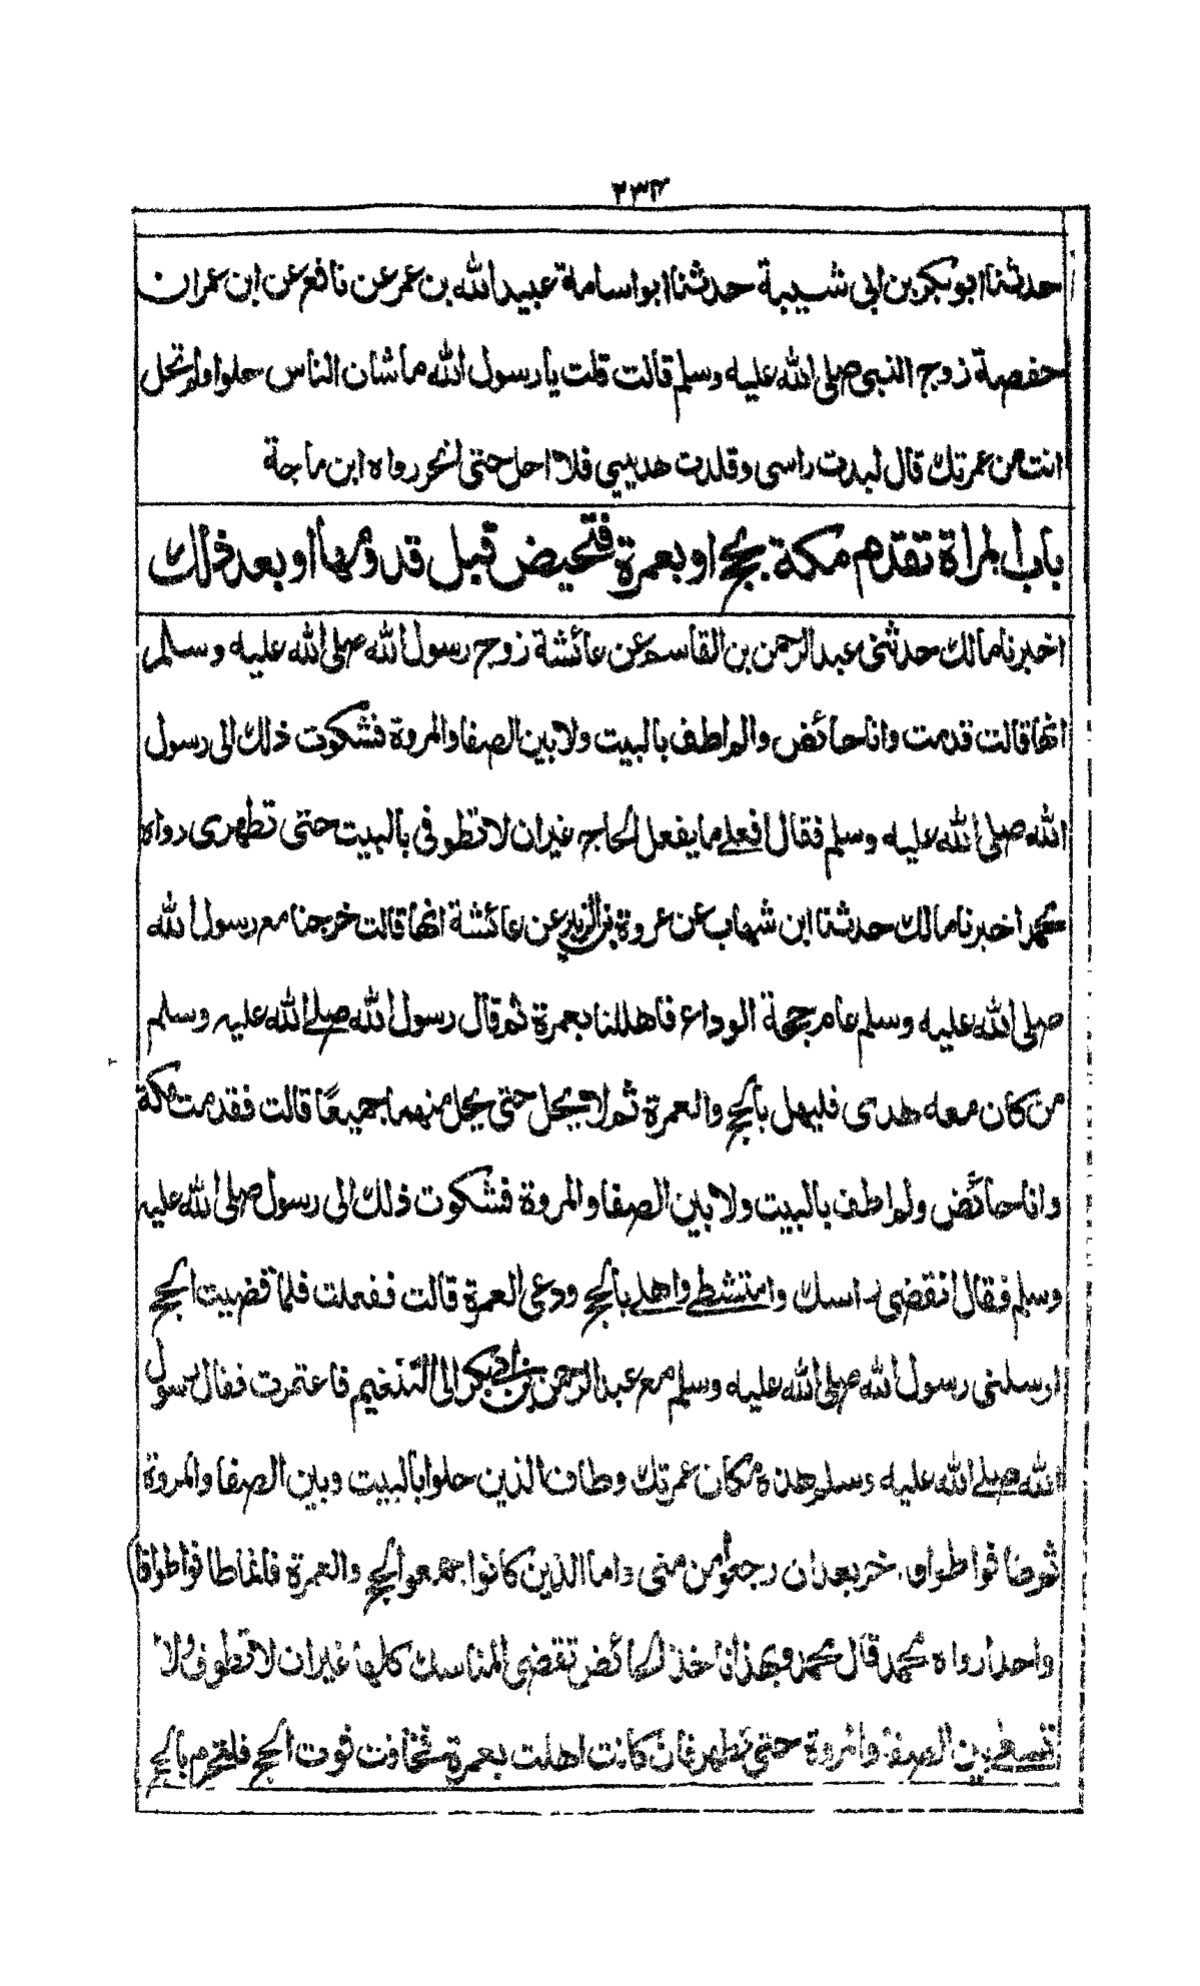 ٢٣٤
حدثنا ابو بكر بن ابى شيبة حدثنا ابو اسامة عبيد الله بن عمر عن نافع عن ابن عمر ان
حفصة زوج النبى صلى الله عليه وسلم قالت قلت يا رسول الله ما شان الناس حلوا ولم تحل
انت من عمرتك قال لبدت راسى وقلدت هديى فلا احل حتى انحر رواه ابن ماجة
باب المراة تقدم مكة بحج او بعمرة فتحيض قبل قدومها او بعد ذلك
اخبرنا مالك حدثنى عبد الرحمن بن القاسم عن عائشة زوج رسول الله صلى الله عليه وسلم
انها قالت قدمت وانا حائض ولم اطف بالبيت ولا بين الصفا والمروة فشكوت ذلك الى رسول
الله صلى الله عليه وسلم فقال افعلى ما يفعل الحاج غير ان لا تطوفى بالبيت حتى تطهرى رواه
محمد اخبرنا مالك حدثنا ابن شهاب عن عروة بن الزبير عن عائشة انها قالت خرجنا مع رسول الله
صلى الله عليه وسلم عام حجة الوداع فاهللنا بعمرة ثم قال رسول الله صلى الله عليه وسلم
من كان معه هدى فليهل بالحج والعمرة ثم لا يحل حتى يحل منهما جميعا قالت فقدمت مكة
وانا حائض ولم اطف بالبيت ولا بين الصفا والمروة فشكوت ذلك الى رسول صلى الله عليه
وسلم فقال انقضى راسك وامتشطى واهلى بالحج ودعى العمرة قالت ففعلت فلما قضيت الحج
ارسلنى رسول الله صلى الله عليه وسلم مع عبد الرحمن بن ابى بكر الى التنعيم فاعتمرت فقال رسول
الله صلى الله عليه وسلم هذه مكان عمرتك وطاف الذين حلوا بالبيت وبين الصفا والمروة
ثم طافوا طوافا اخر بعد ان رجعوا من منى واما الذين كانوا جمعوا الحج والعمرة فانما طافوا طوافا
واحدا رواه محمد قال محمد وبهذا ناخذ الحائض تقضى المناسك كلها غير ان لا تطوف ولا
تسعى بين الصفا والمروة حتى تطهر فان كانت اهلت بعمرة فخافت فوت الحج فلتحرم بالحج